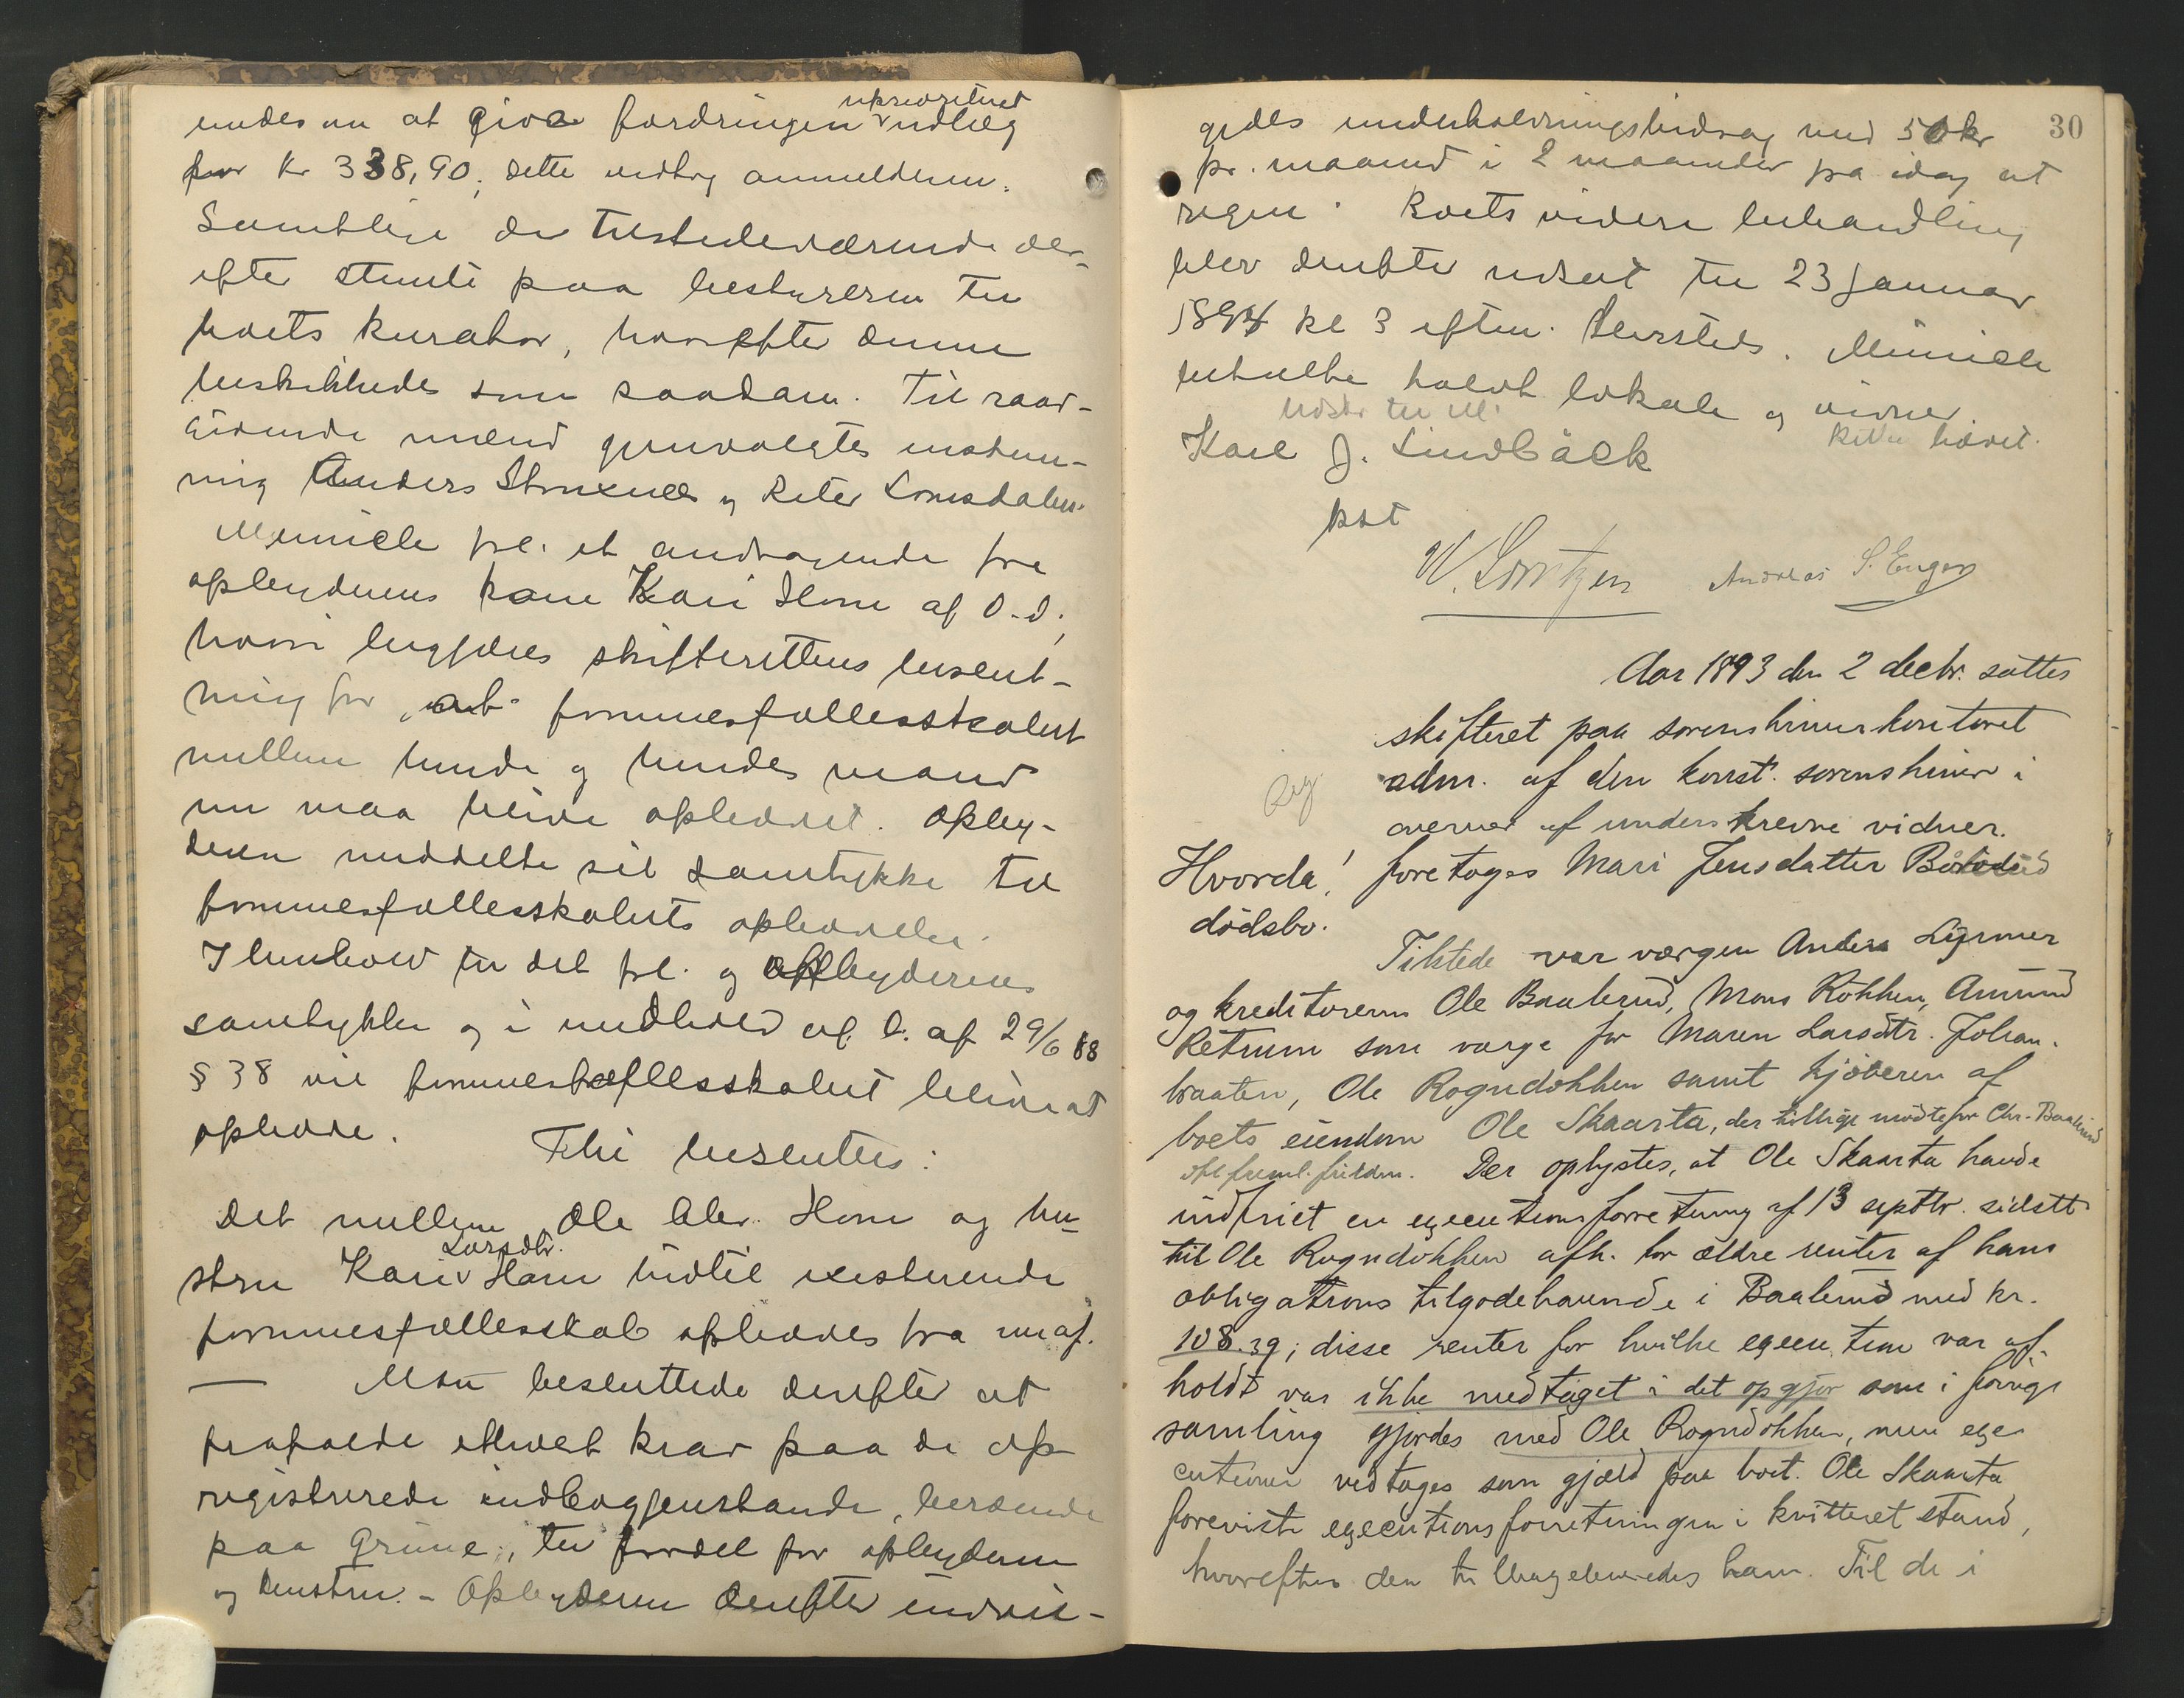 endes nu at give fordringen uprioriteret udlæg
for kr 338,90; dette vedtog anmelderen.
Samtlige de tilstedeværende der-
efter stemte paa bestyreren til
boets kurator, hvorefter denne
beskikkedes som saadan. Til raad-
givende mænd gjenvalgtes enstem-
mig Anders Stouxnæs og Peter Lomsdalen.
Münicle frl. et andragende fra
opbyderens kone Kari Horn af D. D.,
hvori begjæres skifterettens beslut-
ning for, at formuesfællesskabet
mellem hende og hendes mand
nu maa blive ophævet. Opby-
deren meddelte sit samtykke til
formuesfællesskabets ophævelse.
I henhold til det frl. og opbyderens
samtykke og i medhold af l. af 29/6 88
§ 38 vil formuesfællesskabet blive at
ophæve.
Thi besluttes:
Det mellem Ole Horn og hu-
stru Kari Larsdtr. Horn hidtil existerende
formuesfællesskab ophæves fra nu af.
— Man besluttede derefter at
frafalde ethvert krav paa de op
registrerede indbogjenstande, beroende
paa Grüne, til fordel for opbyderen
og hustru. - Opbyderen derefter indvil-
30
gedes underholdningsbidrag med 50 kr
pr. maaned i 2 maaneder fra idag at
regne. Boets videre behandling
blev derefter udsat til 23 Januar
1894 kl 3 efterm. hersteds. Münicle
betalte holdt lokale og vidner.
Udskr til M.
Retten hævet.
Karl J. Lindbäck
kst
W. Lorntzen Andreas S. Enger
Aar 1893 den 2 decbr. sattes
skifteret paa sorenskriverkontoret
adm. af den konst. sorenskriver i
overvær af underskrevne vidner.
Reg.
Hvorda! foretoges Mari Jensdatter Bålerud
dödsbo.
Tilstede var værgen Anders Lysmer
og kreditorerne Ole Baalerud, Mons Kokken, Amund
Retrum som værge for Maren Larsdtr. Johan-
braaten, Ole Rogndokken samt kjöberen af
boets eiendom Ole Skaarta, der tillige mödte for Chr. Baalerud
Der oplystes, at Ole Skaarta havde
indfriet en executionsforretning af 13 septbr. sidstl.
til Ole Rogndokken afh. for ældre renter af hans
obligations tilgodehavende i Baalerud med kr.
108.39; disse renter for hvilke execution var af-
holdt var ikke medtaget i det opgjör som i forrige
samling gjordes med Ole Rogndokken, men exe-
cutionen vedtoges som gjæld paa boet. Ole Skaarta
foreviste executionsforretningen i kvitteret stand,
hvorefter den tilbageleveredes ham. Til de i